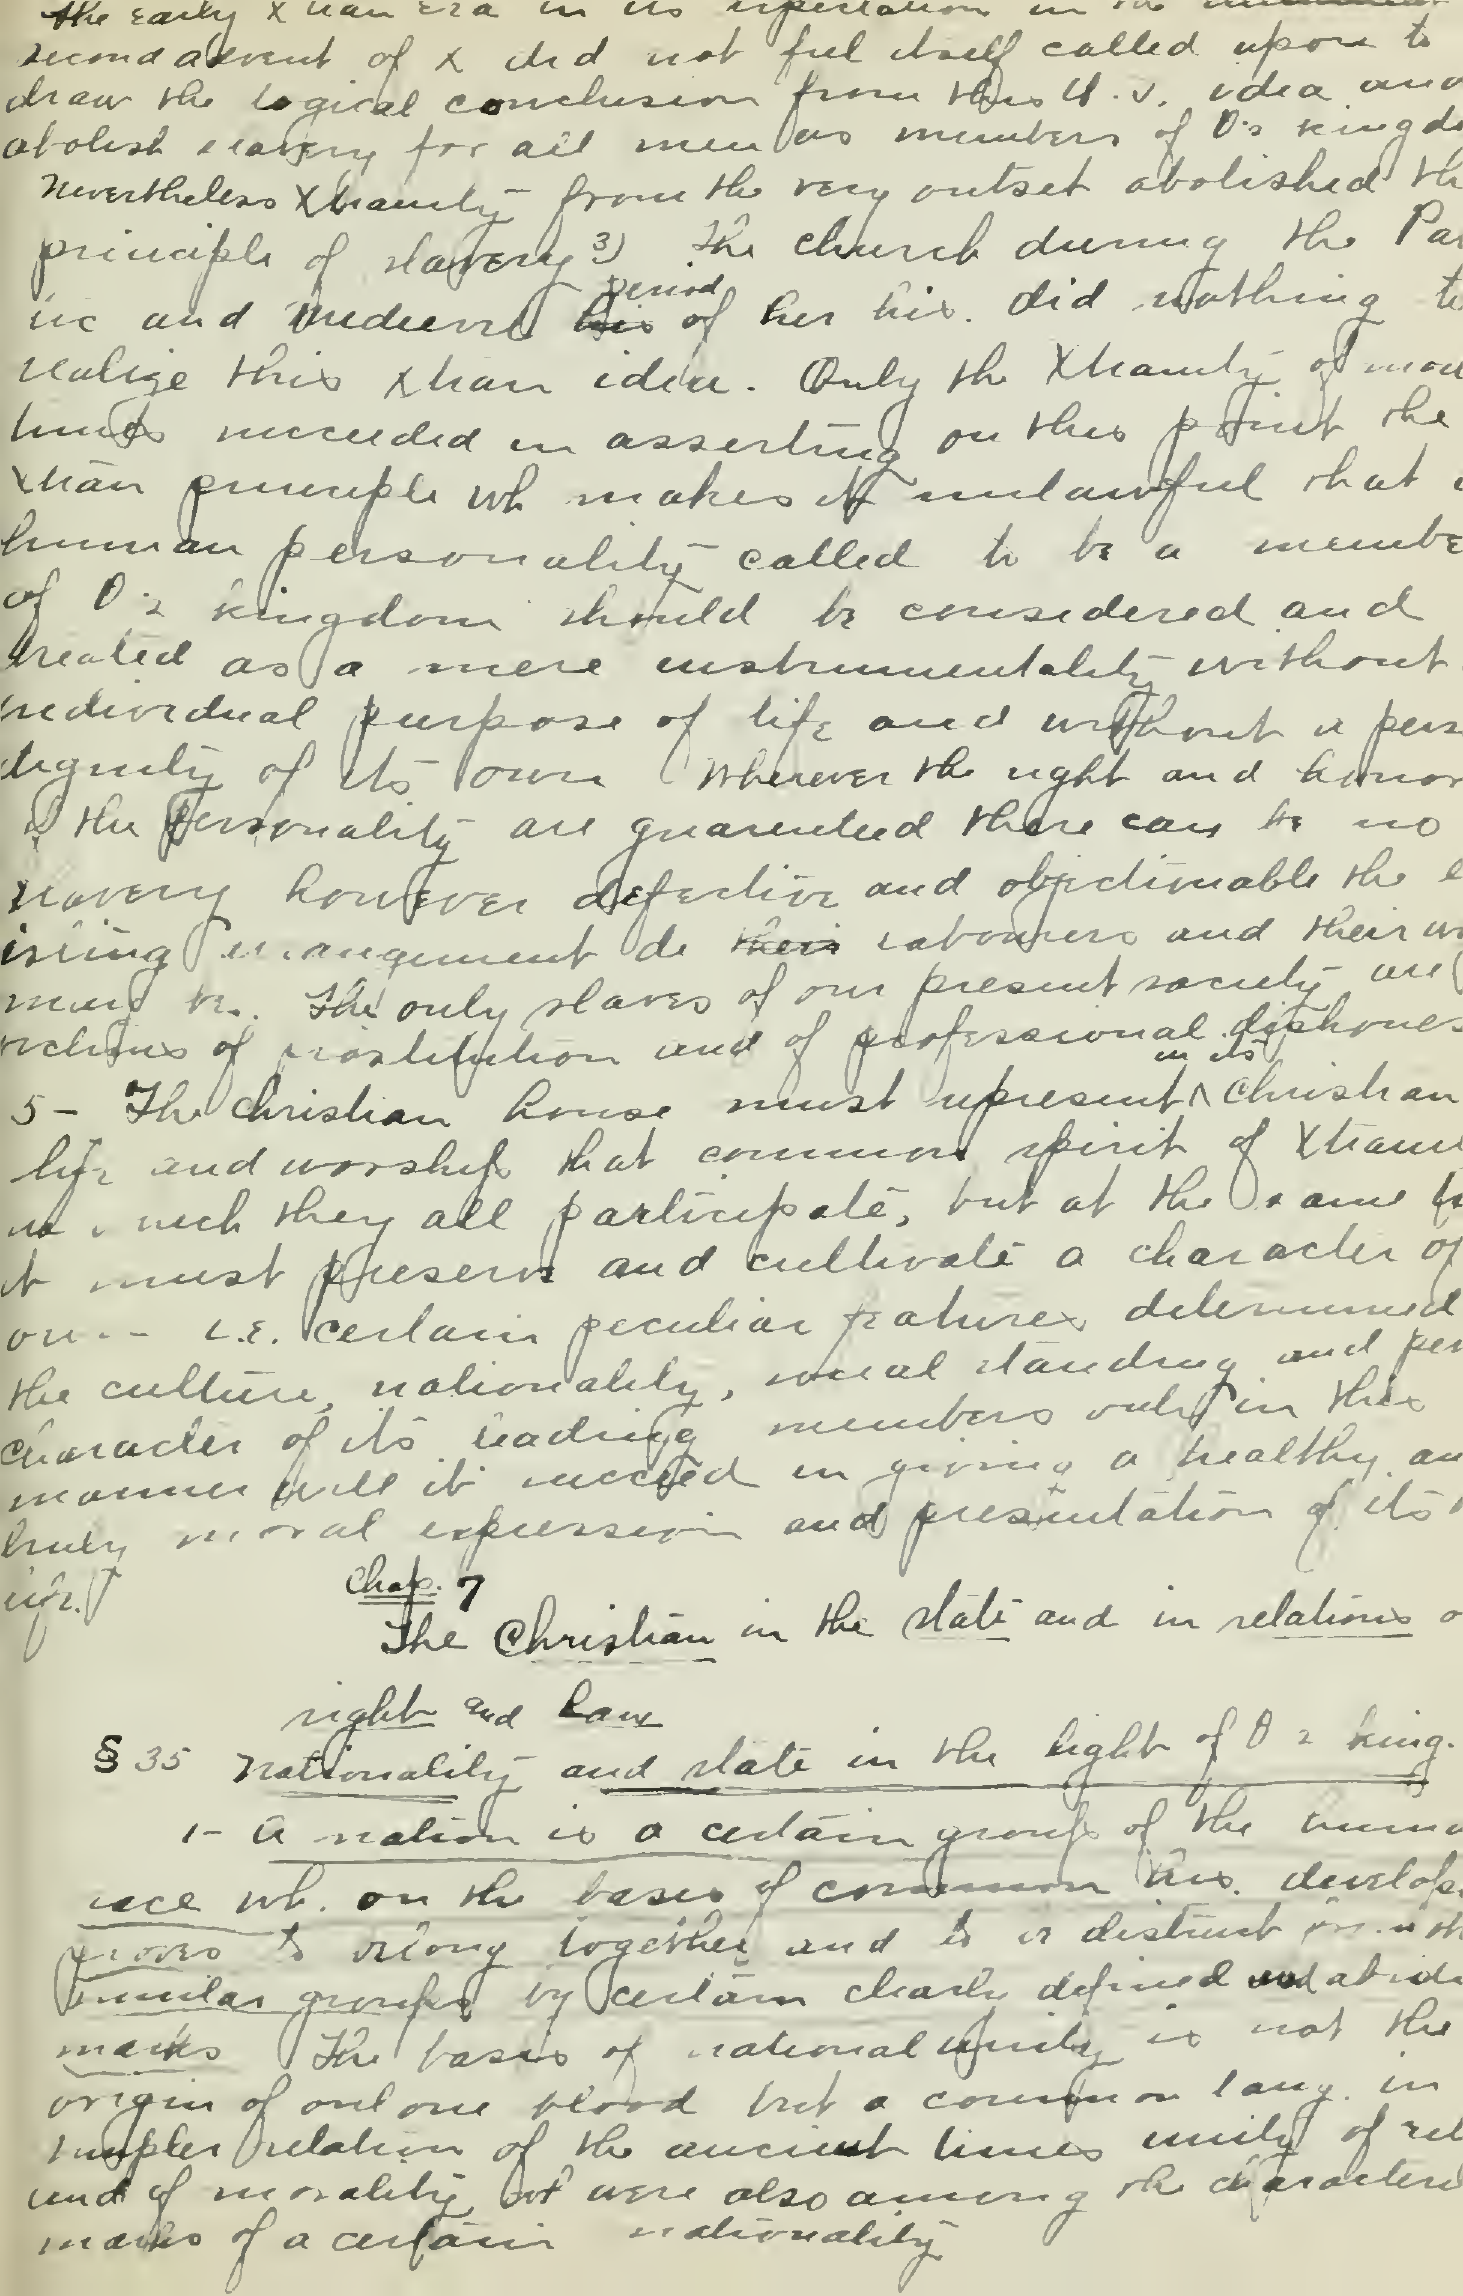 the early Xtian era in its expectation in the
second advent of X did not feel itself called upon to
draw the logical conclusion from this N.T. idea and
abolish slavery for all men as members of θ's kingdo
Nevertheless Xtianity from the very outset abolished th
principle of slavery 3) The church during the Pa
period
ic and Medieval his of her his. did nothing to
realize this Xtian idea. Only the Xtianity of mod
times succeeded in asserting on this point the
Xtian principle wh makes it unlawful that a
human personality called to be a membe
of θ's kingdom should be considered and
treated as a mere instrumentality without
individual purpose of life and without a pers
dignity of its own Wherever the right and honor
of the personality are guarenteed there can be no
slavery however defective and objectionable the e
isting arrangement de their labourers and their w
may be. The only slaves of our present society are
victims of prostitution and of professional dishones
in its
5- The Christian house must represent ^ Christian
life and worship that common spirit of Xtiani
in which they all participate, but at the same ti
it must preserve and cultivate a character of
own - i.e. certain peculiar features determined
the culture, nationality, social standing and per
character of its leading members only in this
manner will it succeed in giving a healthy an
truly moral expression and presentation of its
life.
Chap. 7
The Christian in the state and in relations o
right and law
§ 35 Nationality and state in the light of θ's king.
1- A nation is a certain group of the huma
race wh. on the basis of common his. develop
proves to belong together and to be distinct from oth
similar groups by certain clearly defined and abidi
marks The basis of national unity is not the
origin of only one blood but a common lang. in
simpler relation of the ancient times unity of rel
and of morality were also among the characteri
marks of a certain nationality